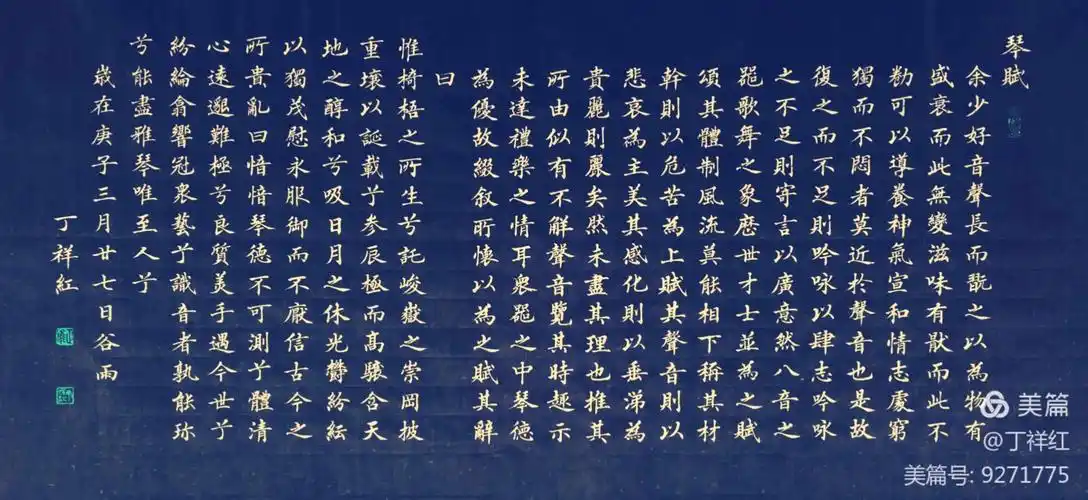 琴賦
余少好音聲長而翫之以為物有
盛衰而此無變滋味有猒而此不
勌可以導養神氣宣和情志處窮
獨而不悶者莫近於聲音也是故
復之而不足則吟咏以肆志吟咏
之不足則寄言以廣意然八音之
噐歌舞之象歷世才士並為之賦
頌其體制風流莫能相下稱其材
幹則以危苦為上賦其聲音則以
悲哀為主美其感化則以垂涕為
貴麗則麗矣然未盡其理也推其
所由似有不解聲音覽其時趣示
未達禮樂之情耳衆噐之中琴德
為優故綴叙所懷以為之賦其辭
曰
惟椅梧之所生兮託峻嶽之崇岡披
重壤以誕載兮参辰極而髙驤含天
地之醇和兮吸日月之休光欝紛紜
以獨茂慰永服御而不厭信古今之
所貴亂曰愔愔琴德不可測兮體清
心逺邈難極兮良質美手遇今世兮
紛綸翕響冠衆藝兮識音者孰能珎
兮能盡雅琴唯至人兮
歲在庚子三月廿七日谷雨
丁祥红
美篇
@丁祥红
美篇号: 9271775